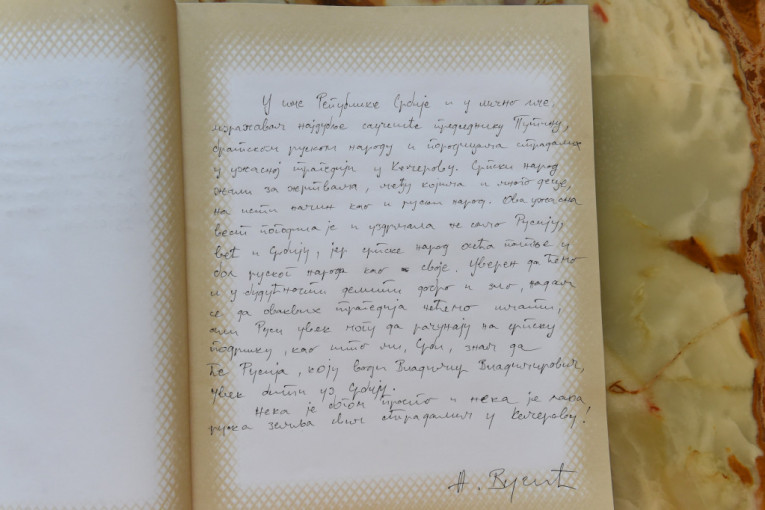 У име Републике Србије и у лично име
изражавам најдубље саучешће председнику Путину,
братском руском народу и породицама страдалих
у ужасној трагедији у Кемерову. Српски народ
жали за жртвама, међу којима и много деце,
на исти начин као и руски народ. Ова ужасна
вест потресла је и уздрмала не само Русију,
већ и Србију, јер српски народ осећа патње и
бол руског народа као своје. Уверен да ћемо
и у будућности делити добро и зло, надам
се да оваквих трагедија нећемо имати,
али Руси увек могу да рачунају на српску
подршку, као што ми, Срби, знамо да
ће Русија, коју води Владимир Владимирович,
увек бити уз Србију.
Нека је Богом просто и нека је лака
руска земља свим страдалим у Кемерову!
А. Вучић